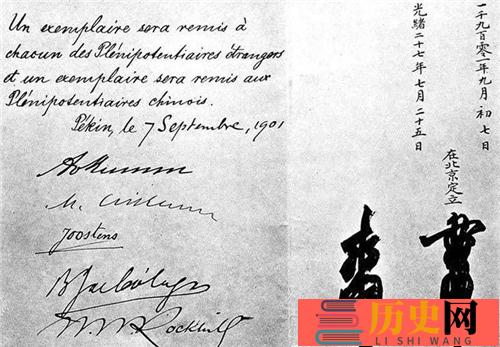 Un exemplaire sera remis à
chacun des Plénipotentiaires étrangers
et un exemplaire sera remis aux
Plénipotentiaires chinois.
Pékin, le 7 Septembre, 1901
Joostens
一千九百零一年九月初七日
光緒二十七年七月二十五日
在北京定立
历史网
LI SHI WANG